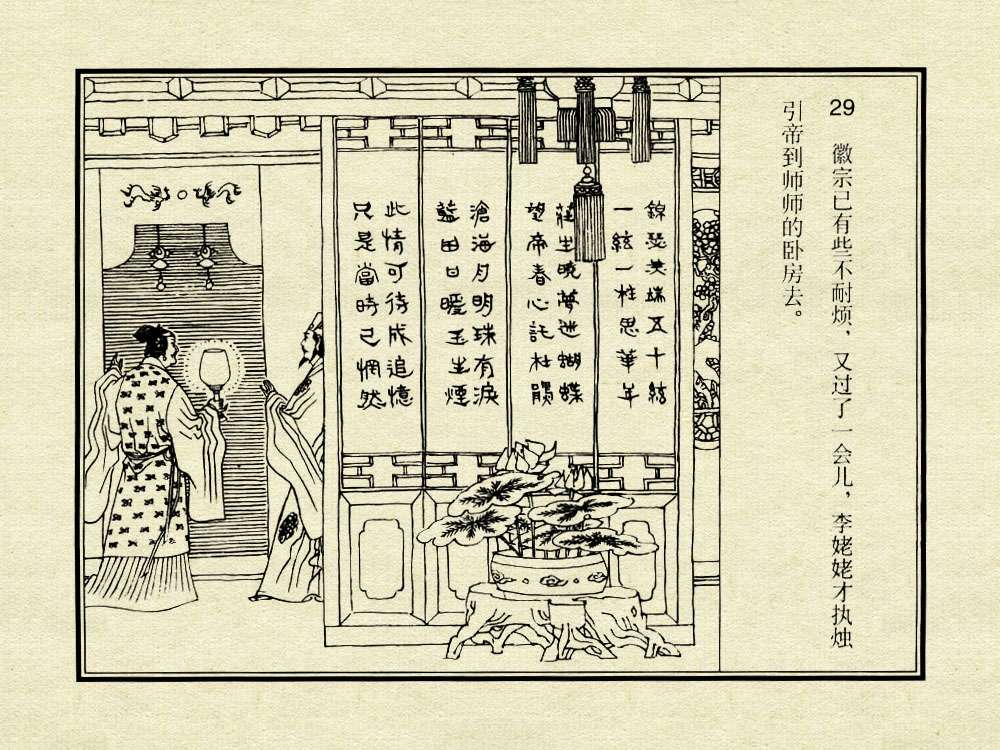 29 徽宗已有些不耐烦，又过了一会儿，李姥姥才执烛
引帝到师师的卧房去。
錦瑟無端五十絃
一絃一柱思華年
莊生曉夢迷蝴蝶
望帝春心託杜鵑
滄海月明珠有淚
藍田日暖玉生煙
此情可待成追憶
只是當時已惘然